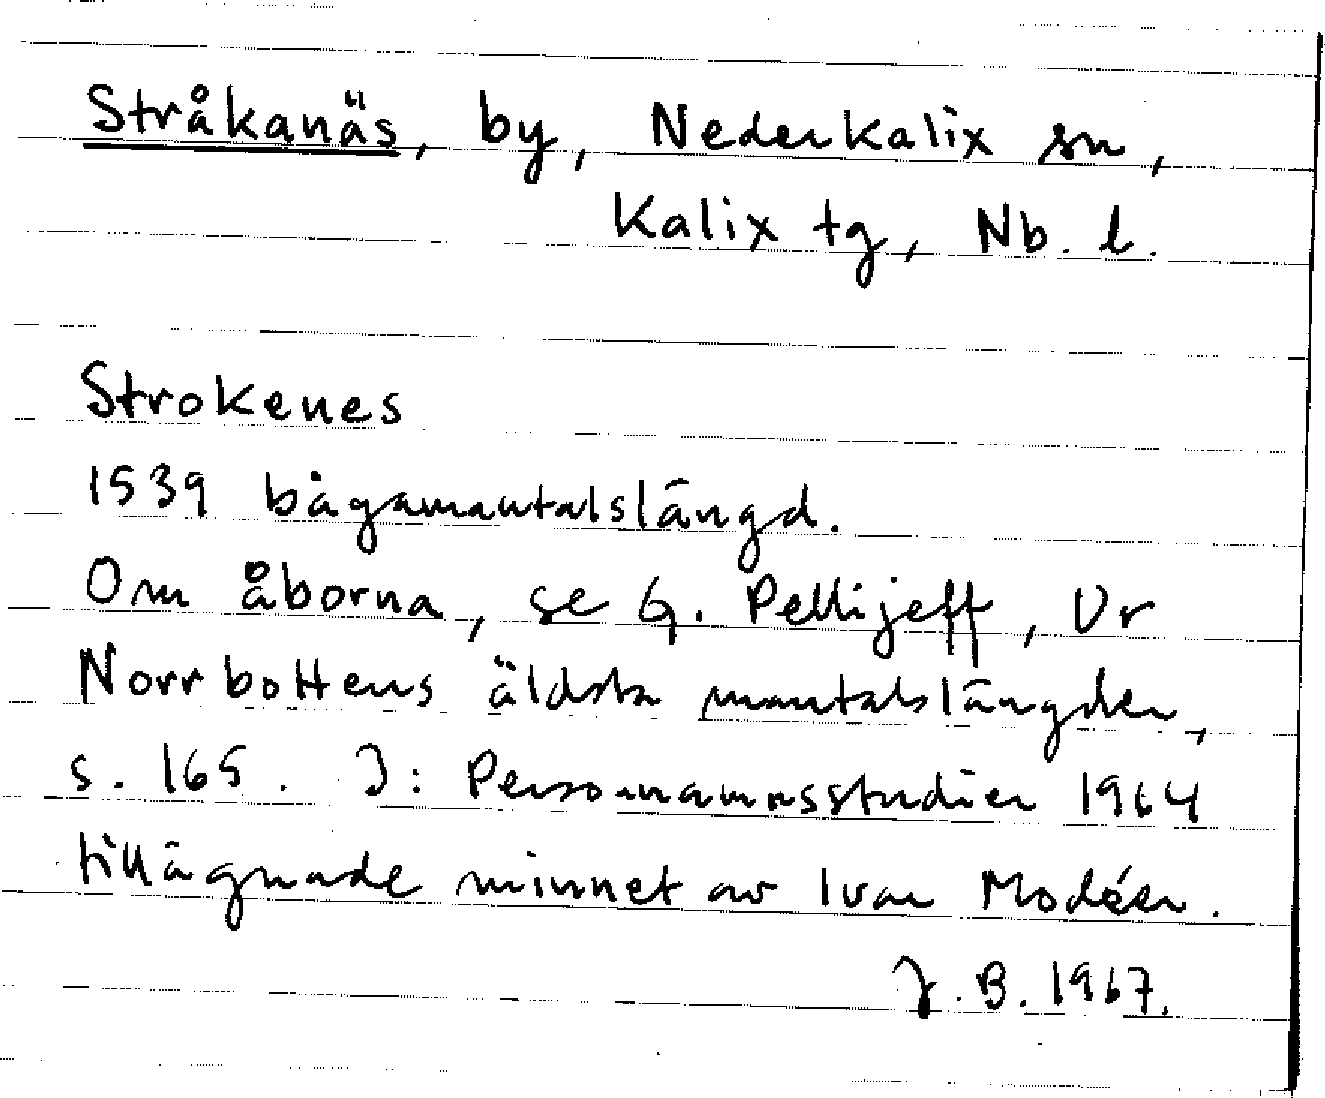 Stråkanäs, by, Nederkalix sn,
Kalix tg, Nb. l.
Strokenes
1539 bågamantalslängd.
Om åborna, se G. Pellijeff, Ur
Norrbottens äldsta mantalslängder,
s. 165. I: Personnamnsstudier 1964
tillägnade minnet av Ivar Modéer.
J. B. 1967.